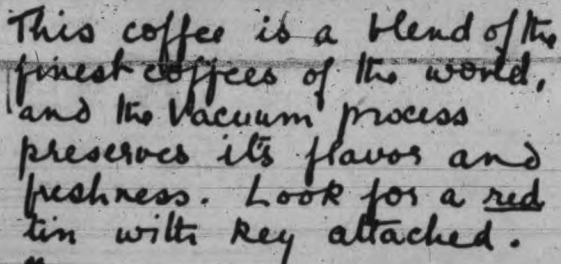 This coffee is a blend of the
finest coffees of the world,
and the Vacuum process
preserves its flavor and
freshness. Look for a red
tin with key attached.